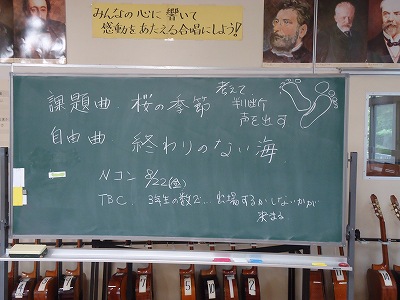 みんなの心に響いて
感動をあたえる合唱にしよう!!
課題曲.桜の季節
考えて
判断
声を出す
自由曲.終わりのない海
Nコン 8/22(金)
TBC. 3年生の数で… 出場するかしないかが
決まる
7
5
10